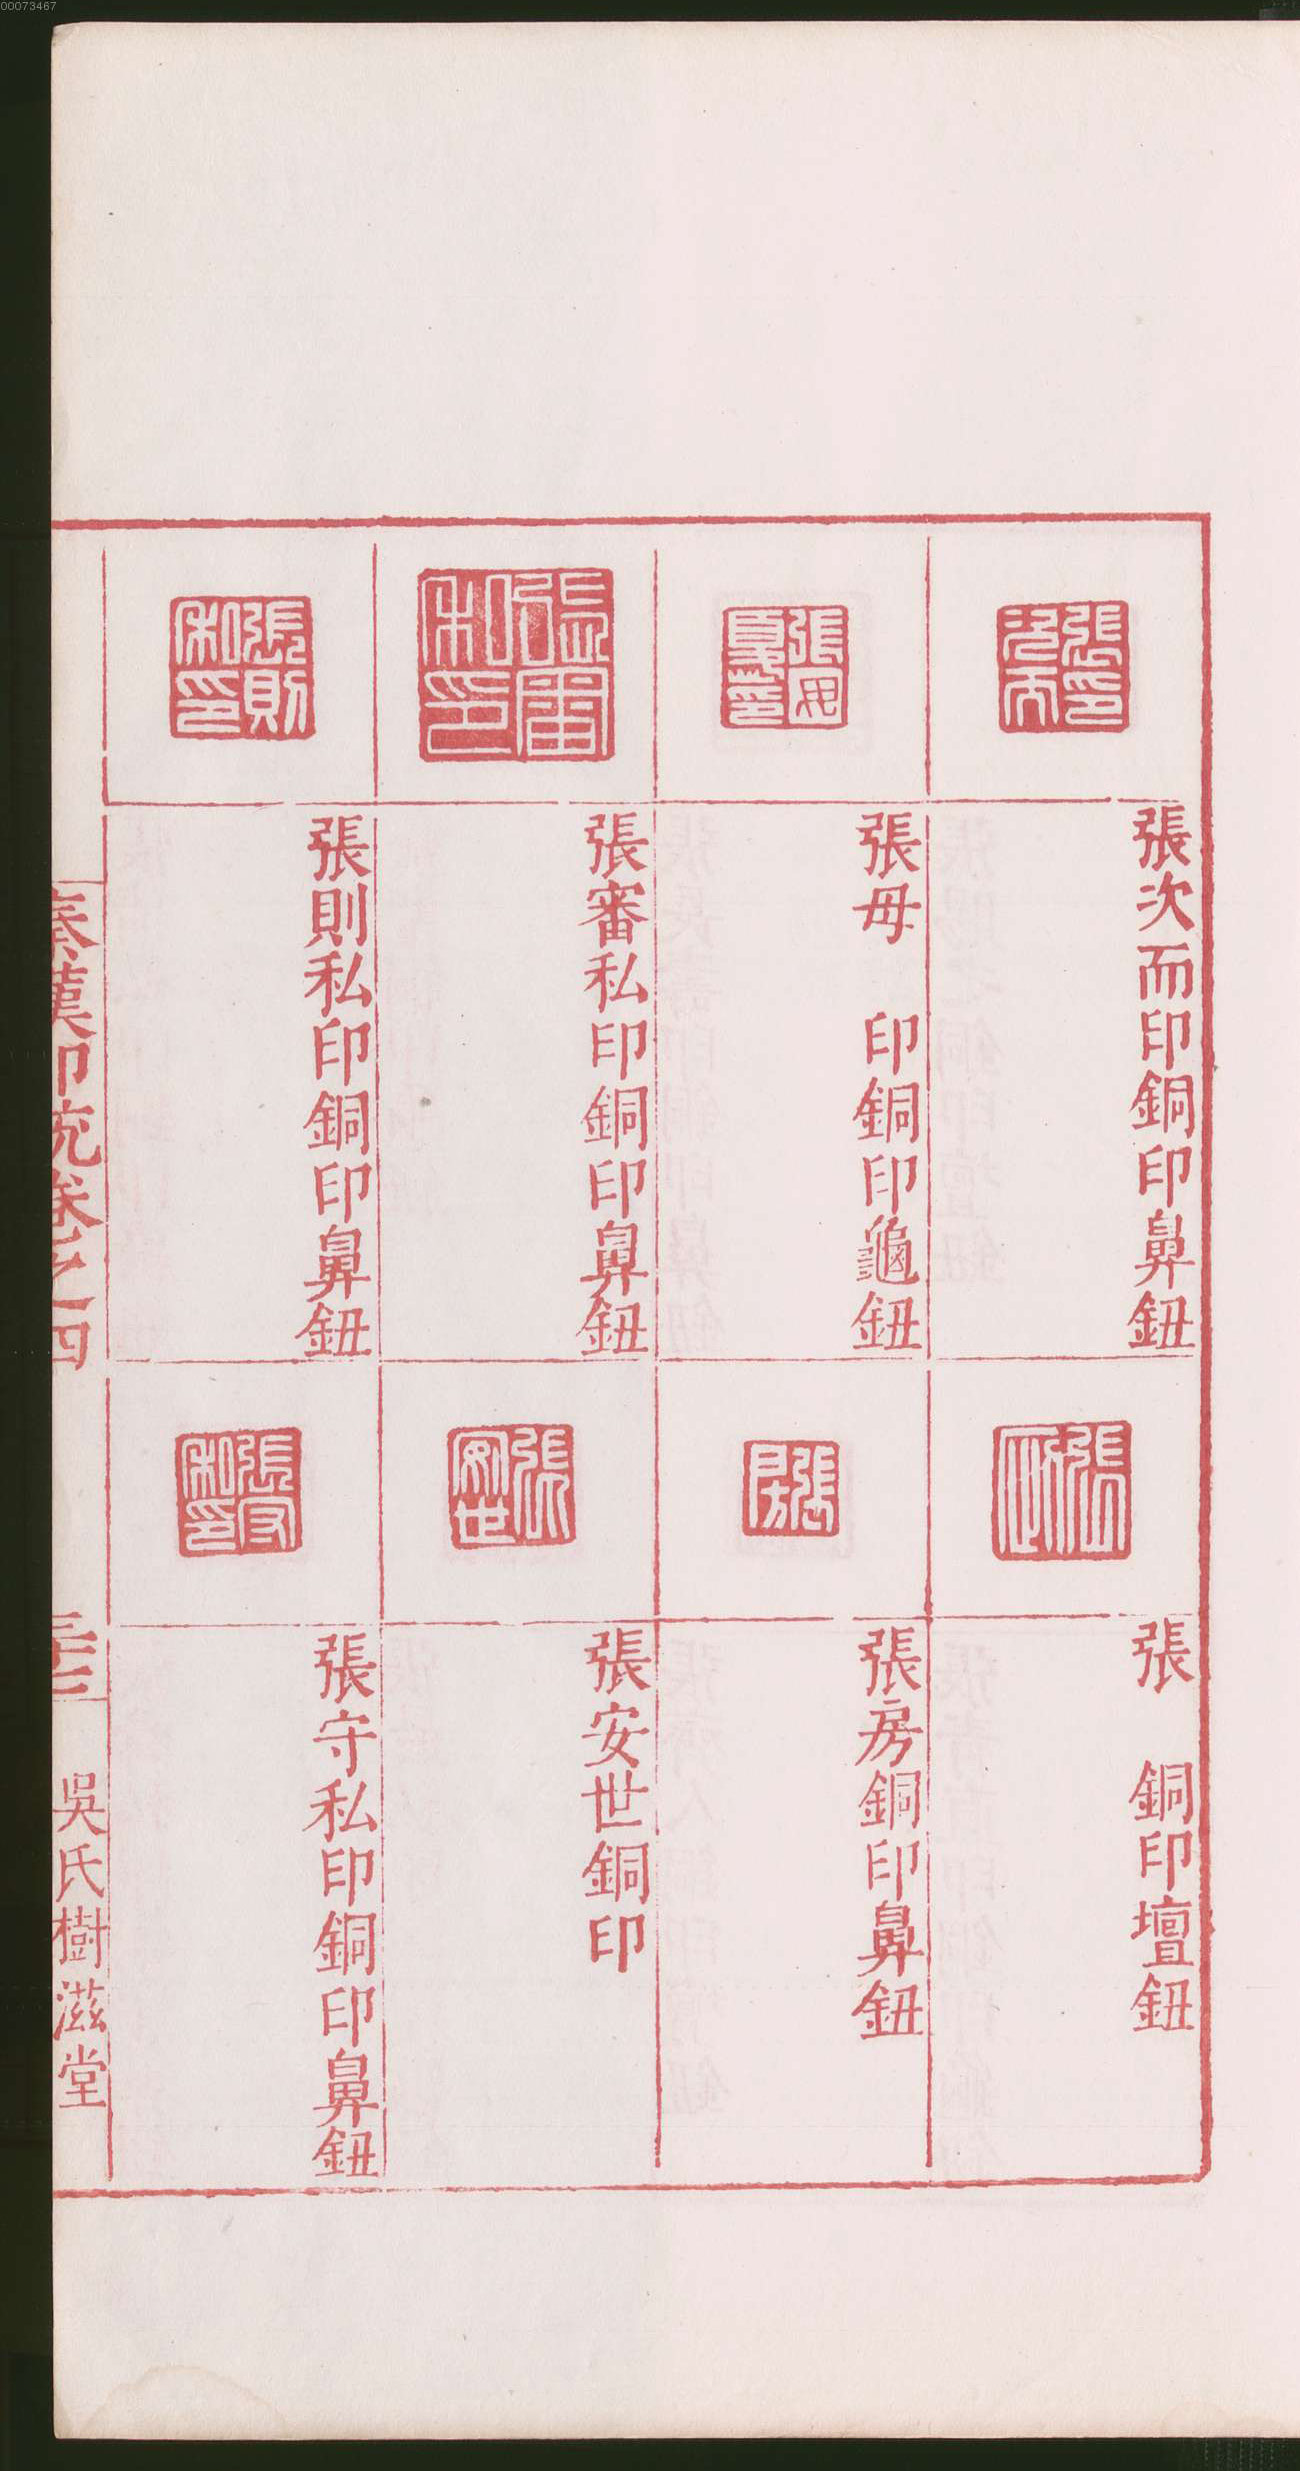 00073467
張次而印銅印鼻鈕
張母　印銅印龜鈕
張審私印銅印鼻鈕
張則私印銅印鼻鈕
張　銅印壇鈕
張房銅印鼻鈕
張安世銅印
張守私印銅印鼻鈕
秦漢印統卷之四
吳氏樹滋堂